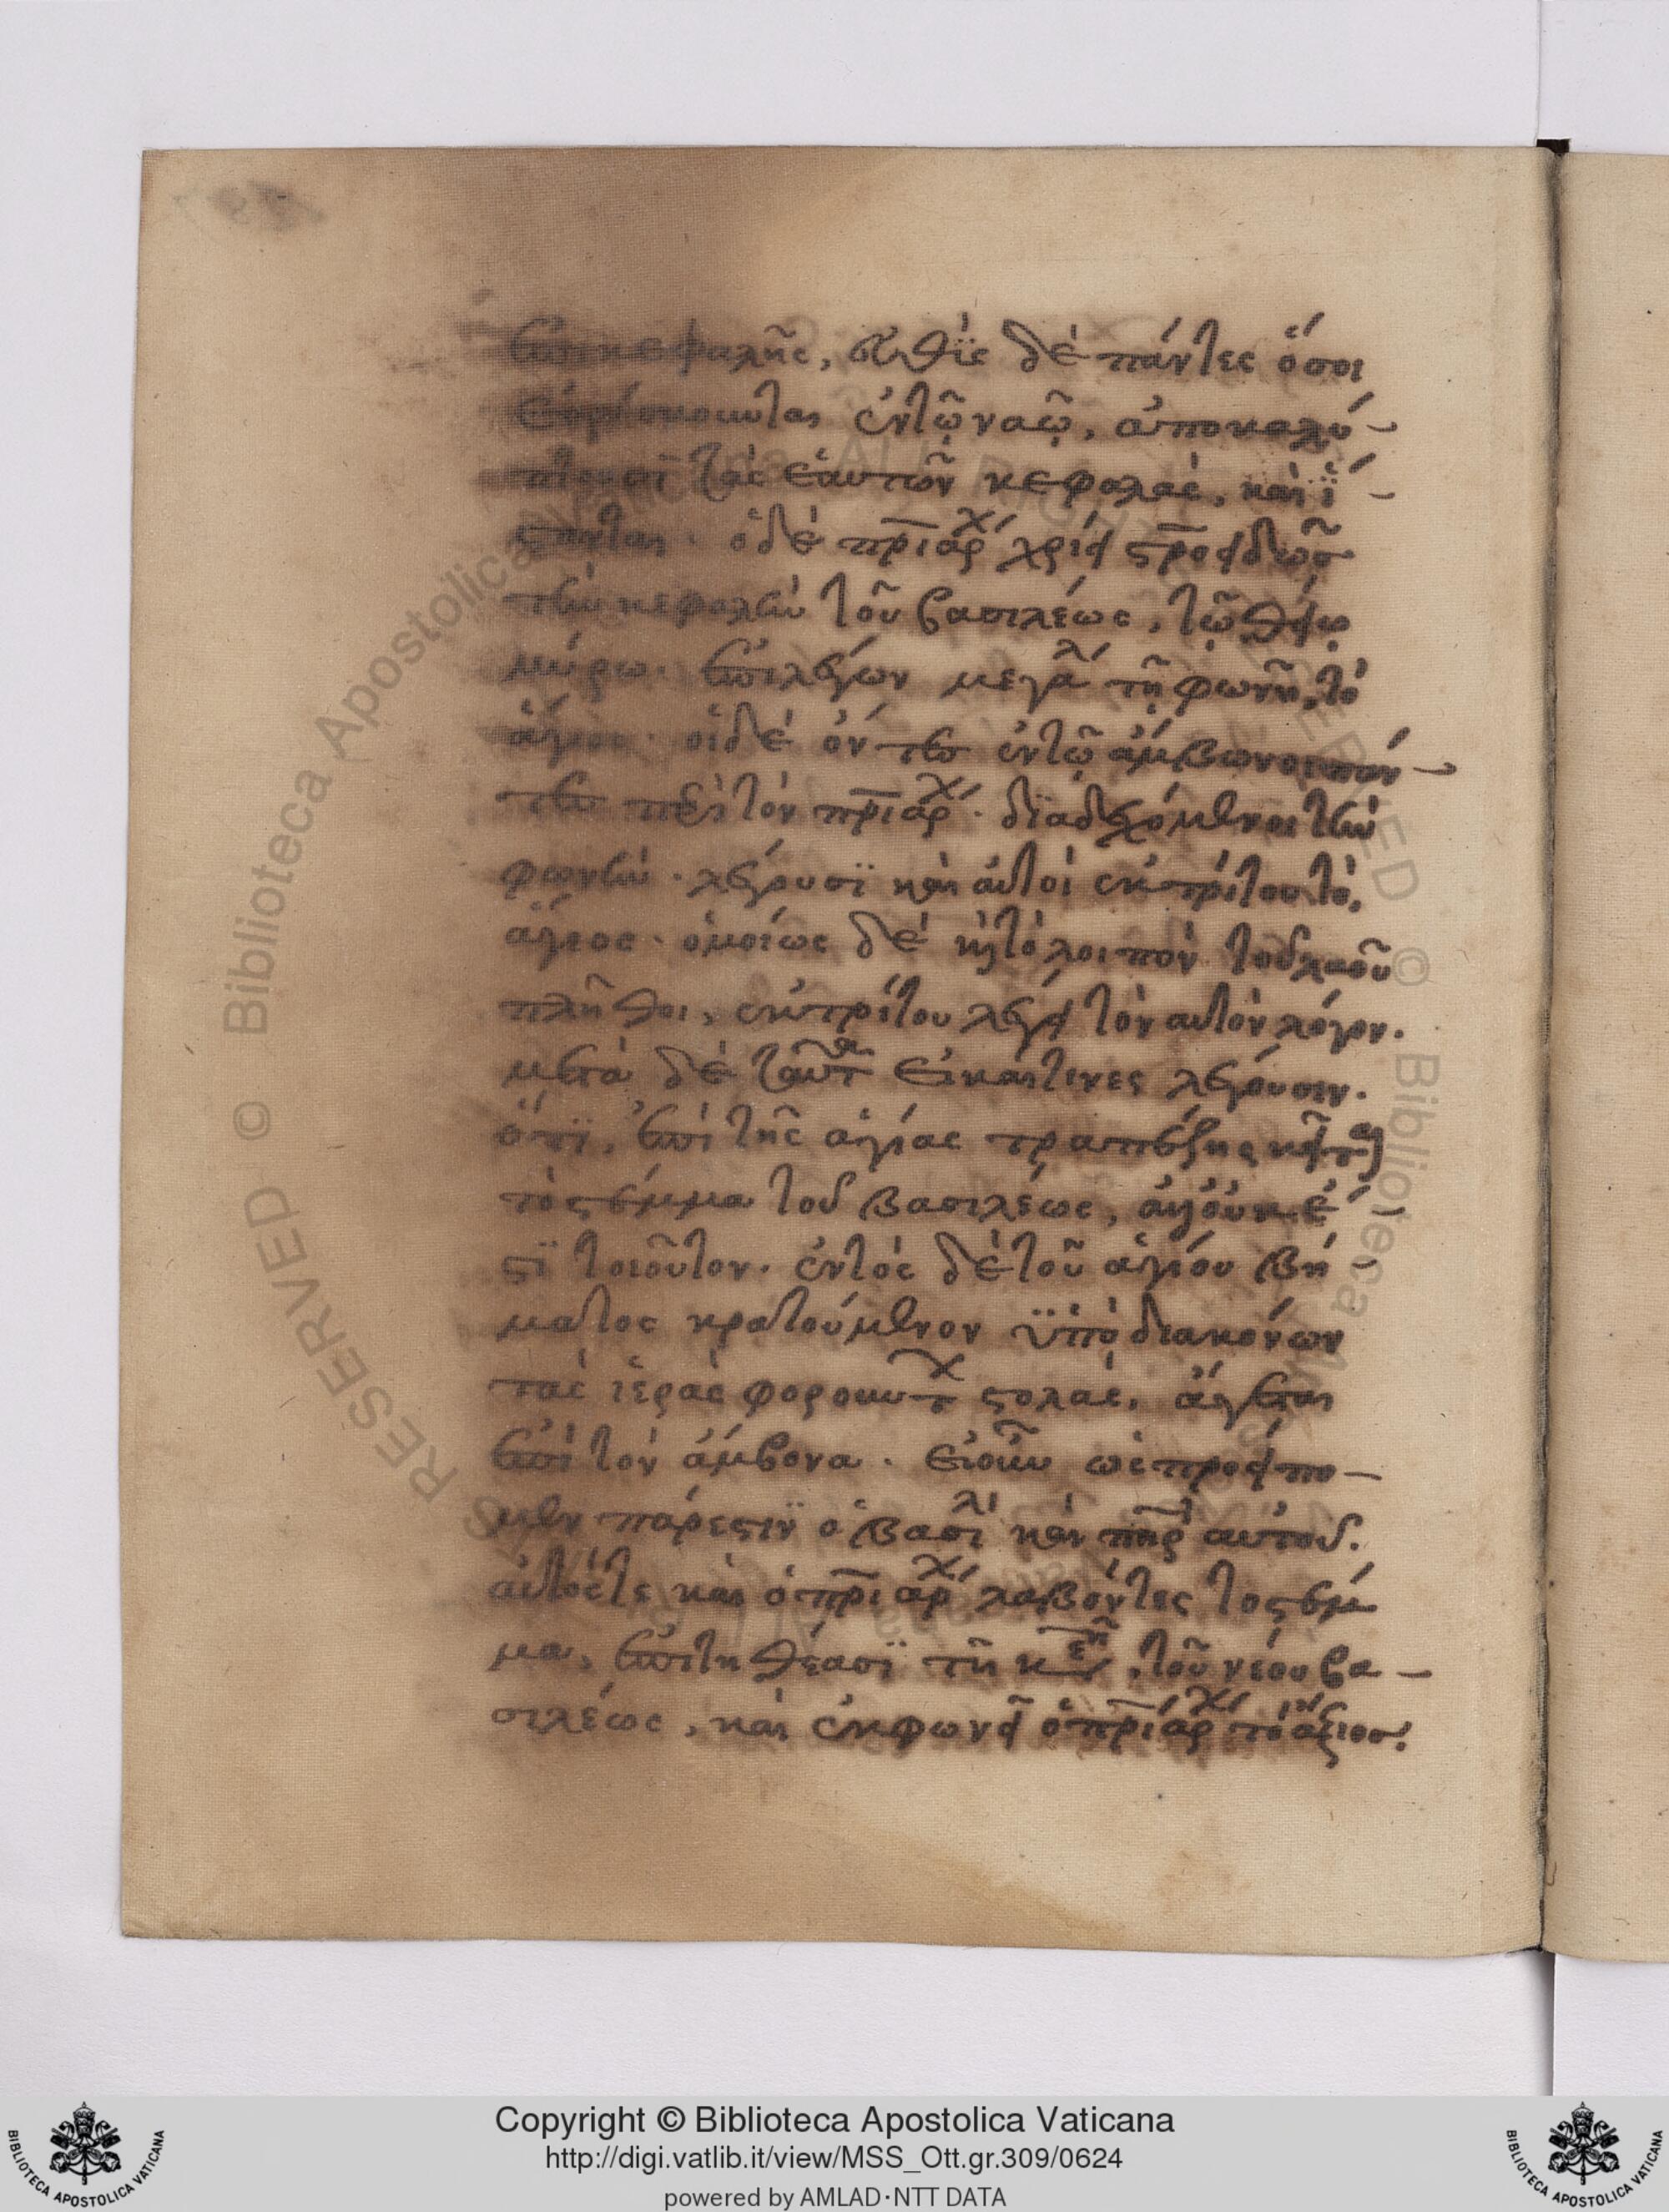 ἐπικεφαλῆς, εὐθὺς δὲ πάντες ὅσοι
εὑρίσκονται ἐντῶ ναῶ, ἀποκαλύ-
πτουσι τὰς ἑαυτῶν κεφαλὰς, καὶ ἵ-
στανται. ὁδὲ πριάρχ χρίει
τὴν κεφαλὴν τοῦ βασιλέως, τῶ θείω
μύρω. ἐπιλέγων μεγάλ τῆ φωνῆ, τὸ
ἅγιος. οἱδὲ ἐντῶ ἄμβωνοι
πρὶ τὸν πριάρχ. διαδεχόμενοι τὴν
φωνὴν. λέγουσϊ καὶ αὐτοὶ ἐκτρίτου τὸ,
ἅγιος. ὁμοίως δὲ κὶ τὸ λοιπὸν τοῦ λαοῦ
πλῆθος, ἐκτρίτου λέγει τὸν αὐτὸν λόγον.
μετὰ δὲ ταῦτα εἰκαίτινες λέγουσιν.
ὅτϊ, ἐπὶ τῆς ἁγίας τραπέζης κεῖται
τὸ στέμμα τοῦ βασιλέως, ἀλλ' οὐκ ἔ-
στϊ τοιοῦτον. ἐντὸς δὲ τοῦ ἁγίου βή-
ματος κρατούμενον ϋπὸ διακόνων
τὰς ἱερὰς φορούντ στολὰς, ἄγεται
ἐπὶ τὸν ἄμβονα. εἰοῦν ὡς προείπο-
μεν πάρεστιν ὁ βασιλ καὶ πηρ αὐτοῦ.
αὐτόςτε καὶ ὁ πριάρχ λαβόντες τὸ στέμ
μα, ἐπιτηθέασϊ τῆ κε, τοῦ νέου βα-
σιλέως, καὶ ἐκφωνεῖ ὁ πριάρχ τὸ ἄξιος.
Copyright © Biblioteca Apostolica Vaticana
http://digi.vatlib.it/view/MSS_Ott.gr.309/0624
powered by AMLAD·NTT DATA
BIBLIOTECA APOSTOLICA VATICANA
BIBLIOTECA APOSTOLICA VATICANA